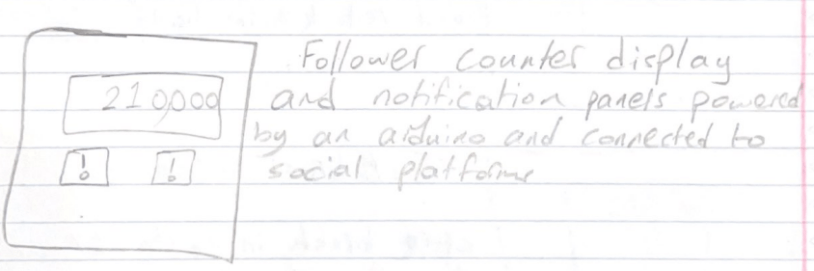 Follower counter display
210,000
and notification panels powered
by an arduino and connected to
! !
social platforms